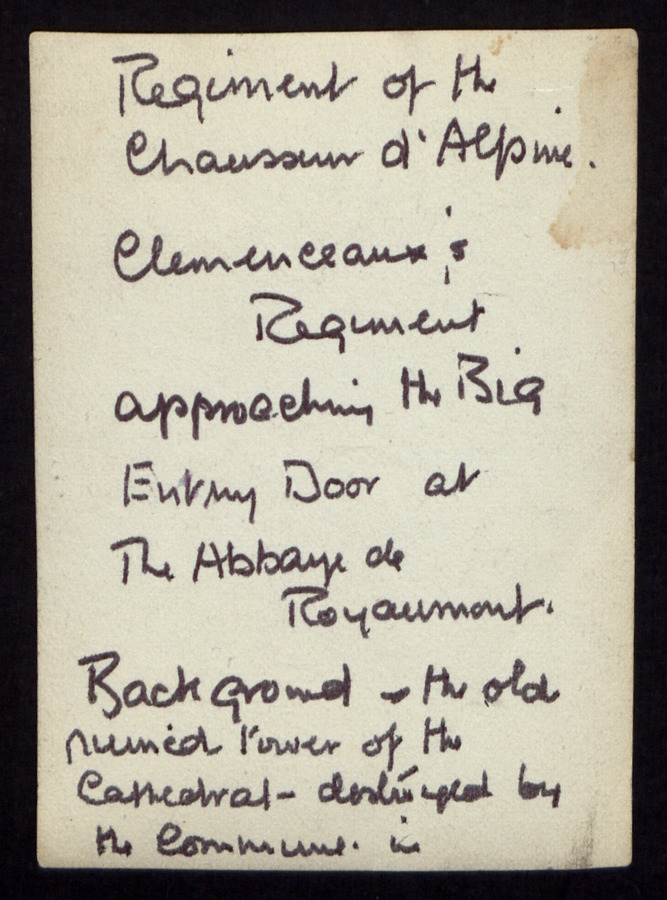 Regiment of the
Chausseur d'Alpine.
Clemenceaux's
Regiment
approaching the Big
Entry Door at
The Abbaye de
Royaumont.
Background - the old
ruined Tower of the
Cathedral - destroyed by
the Commune. in